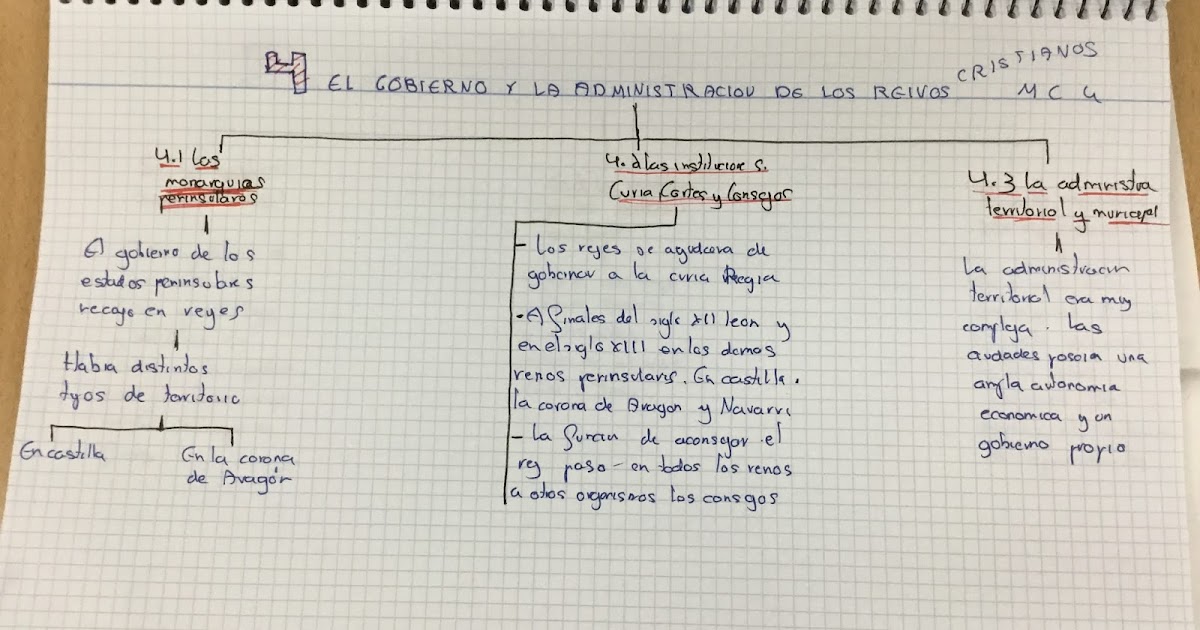 4 EL GOBIERNO Y LA ADMINISTRACION DE LOS REINOS CRISTIANOS
M C G
4.1 Las
monarquias
peninsulares
El gobierno de los
estados peninsulares
recayo en reyes
Habia distintos
tipos de territorio
En castilla
En la corona
de Aragón
4.2 las instituciones.
Curia Cortes y Consejos
- Los reyes se ayudaba de
gobernar a la curia Regia
- A finales del siglo XII leon y
en el siglo XIII en los demas
renos peninsulares. En castilla.
la corona de Aragon y Navarra
- La funcion de aconsejar el
rey paso - en todos los renos
a otros organismos los consejos
4.3 La administra
territorial y municipal
La administracion
territorial era muy
compleja. Las
ciudades poseia una
amplia autonomia
economica y un
gobierno propio